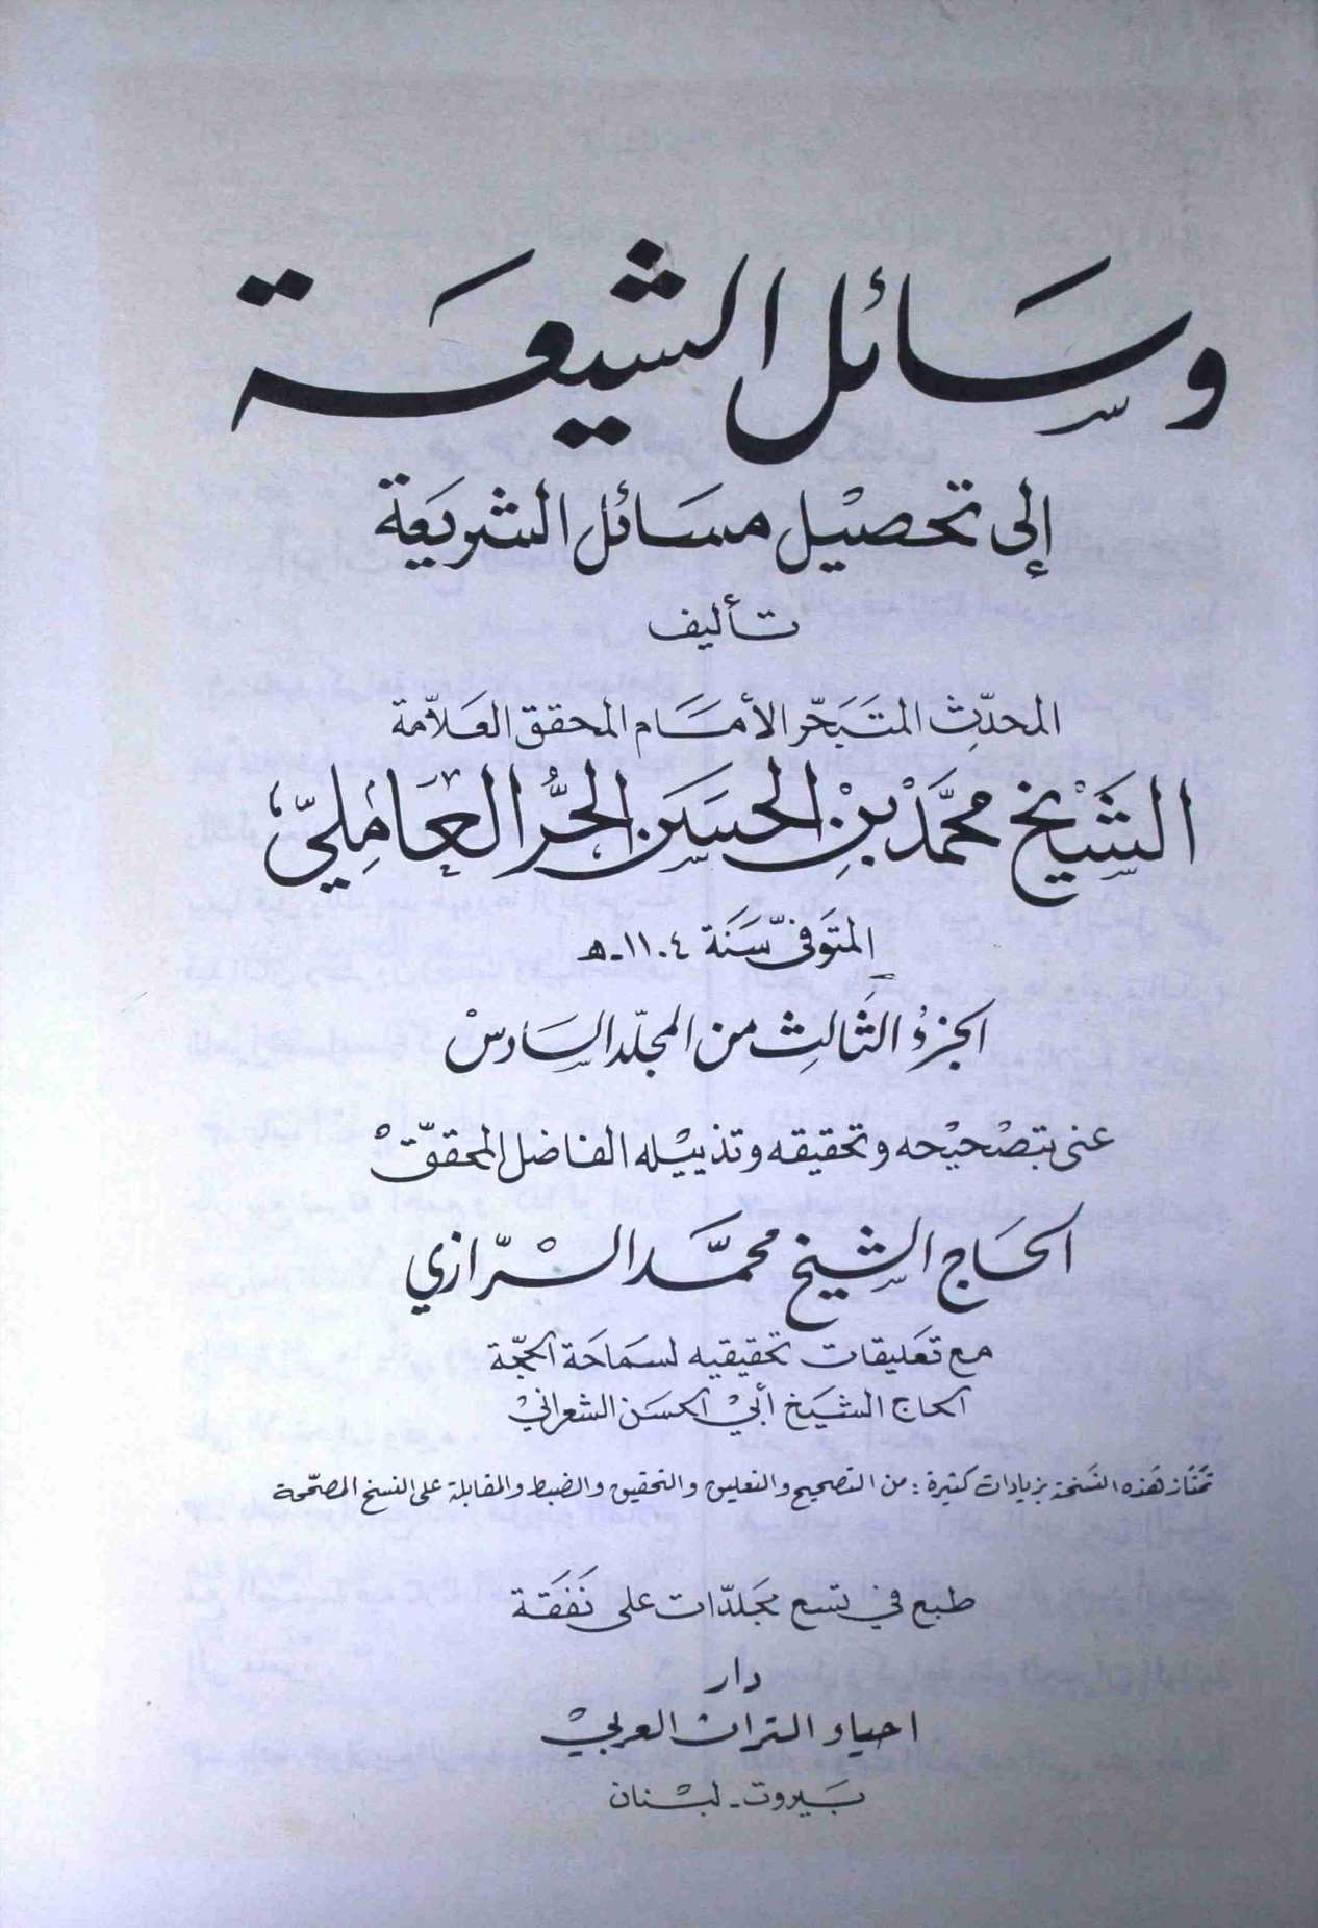 وسائل الشيعة
إلى تحصيل مسائل الشريعة
تأليف
المحدّث المتبحّر الأمام المحقق العلاّمة
الشيخ محمّد بن الحسن الحرّ العاملي
المتوفّى سنة ١١٠٤ هـ
الجزء الثالث من المجلّد السادس
عنى بتصحيحه وتحقيقه وتذييله الفاضل المحقّق
الحاج الشيخ محمّد الرّازي
مع تعليقات تحقيقيه لسماحة الحجّة
الحاج الشيخ أبي الحسن الشعراني
تمتاز هذه النسخة بزيادات كثيرة : من التصحيح والتعليق والتحقيق والضبط والمقابلة على النسخ المصحّحة
طبع في تسع مجلدّات على نفقة
دار
احياء التراث العربي
بيروت - لبنان